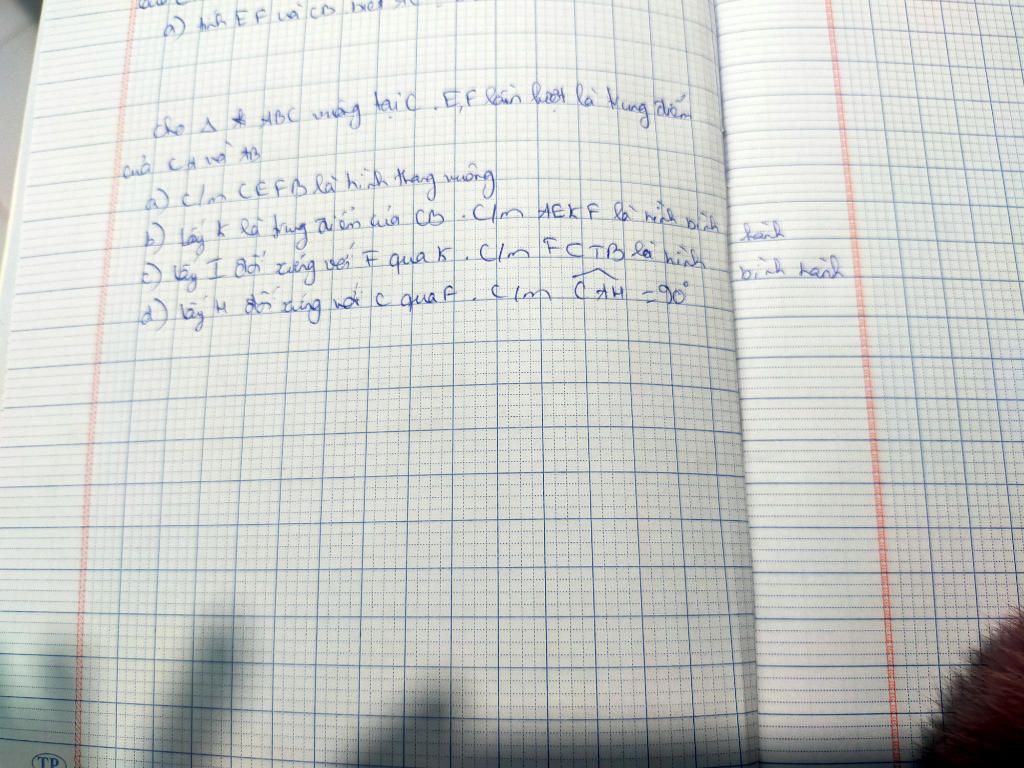 a) tính EF và CB biết
Cho Δ ABC vuông tại C. E,F lần lượt là trung điểm
của CA và AB
a) C/m CEFB là hình thang vuông
b) lấy K là trung điểm của CB. C/m AEKF là hình bình hành
c) lấy I đối xứng với F qua K. C/m FCIB là hình bình hành
d) lấy H đối xứng với C qua F. C/m CAH = 90°
TP